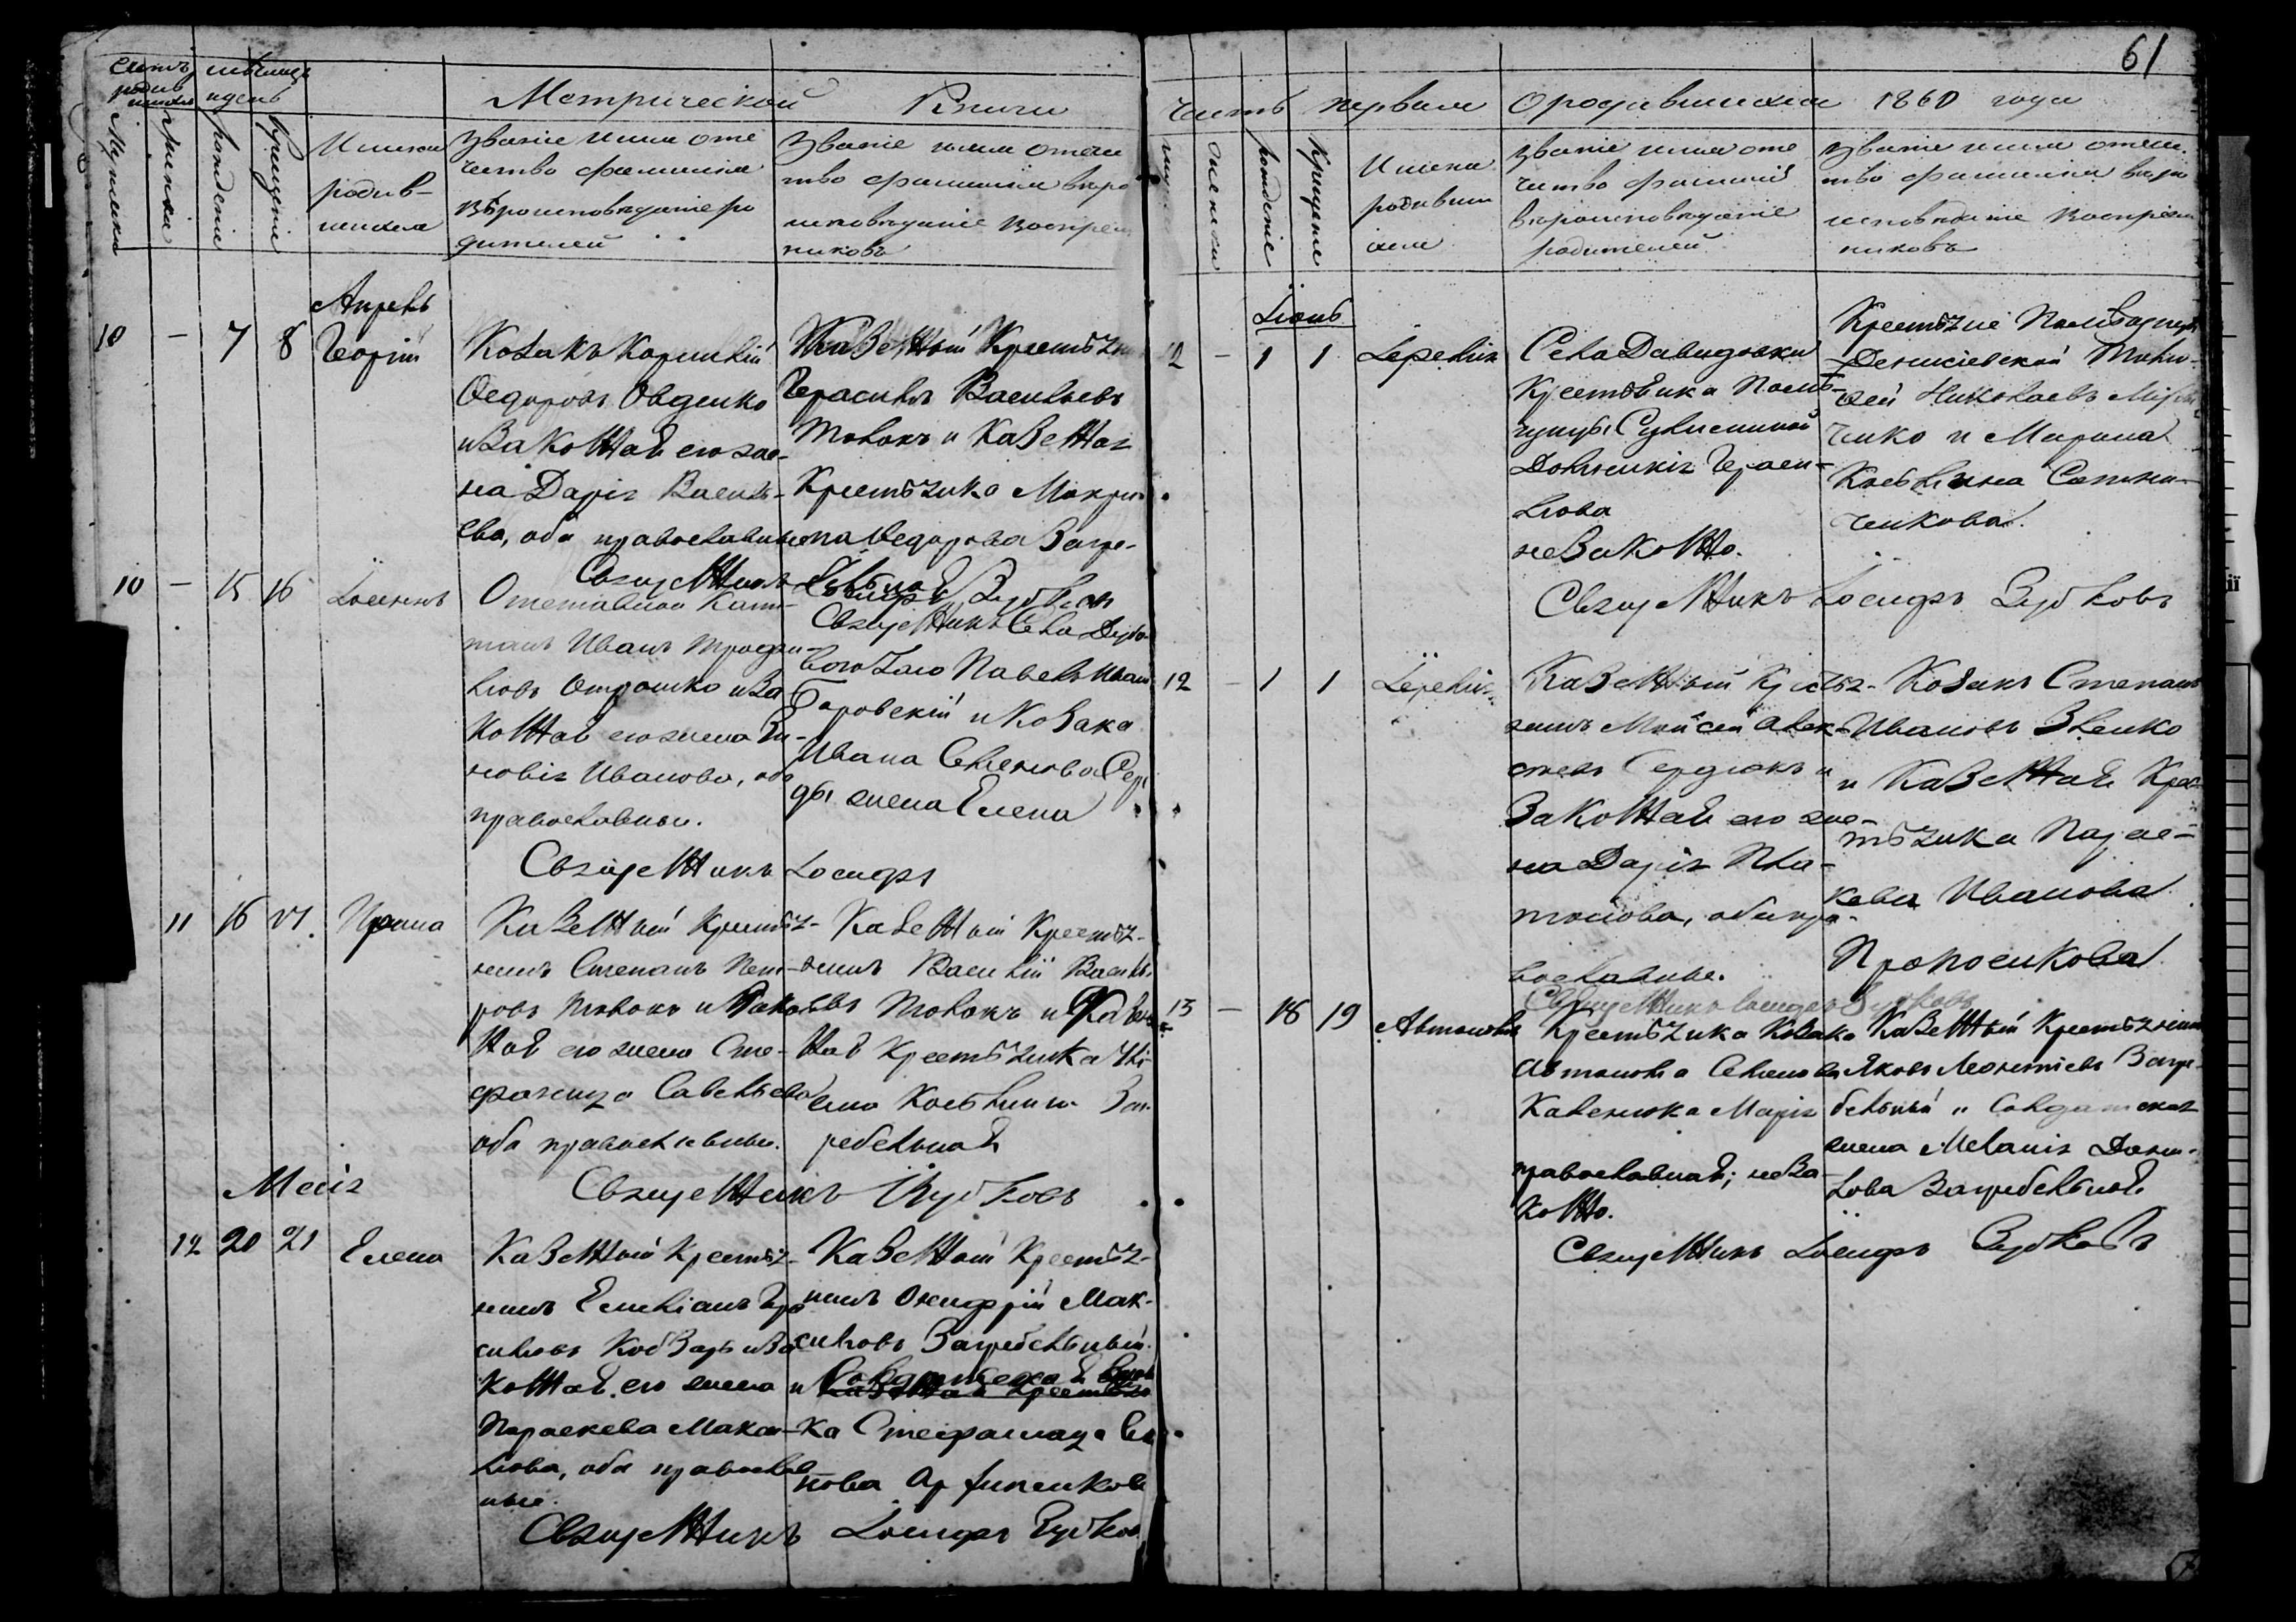 61
Счетъ родив шихся
мѣсяцъ и день
Метрической Книги
Мужеска
Женска
рожденіе
Крещеніе
Имена
родив-
шихся
Званіе имя оте
чество фамилія
вѣроисповѣданіе ро
дителей
Званіе имя отече
ство фамилія вѣро
исповѣданіе Воспрем
никовъ
Апрель
10 – 7 8 Георгій
Козакъ Корнилій
Ѳедоровъ Овденко
и Законная его же-
на Дарія Василь-
ева, оба православные
Казенный Крестьян
Герасимъ Васильевъ
Товокъ и Казенная
Крестьянка Макри
на Ѳедорова Загре-
бельная
Священникъ Іосифъ Зубковъ
10 – 15 16
Отставной Капи-
танъ Иванъ Трофи-
мовъ Отрошко и За
конная его жена Зи-
новія Иванова, оба
православные.
Священникъ Села
Павелъ Иван
Боровскій и Козака
Ивана Семенова
жена Елена
Священникъ Іосифъ
11 16 17. Ирина
Казенный Крестья-
нинъ Степанъ Пет-
ровъ Товокъ и Закон
ная его жена Сте-
фанида Савельева
оба православные.
Казенный Крестья-
нинъ Василій Василь
евъ Товокъ и Казен
ная Крестьянка
Заг
ребельная
Священникъ Зубковъ
Маія
12 20 21 Елена
Казенный Крестья-
нинъ Емеліанъ Гера
симовъ Кобзарь и За
конная его жена
Параскева Мака-
рова, оба православ
ные.
Казенный Крестья-
нинъ Онуфрій Мак-
симовъ Загребельный
и Солдатская
Казенная Крестьян
ка Стефанида
Священникъ Іосифъ Зубков
часть первая О родившихся 1860 года
муж
женска
рожденіе
Крещеніе
Имена
родивши
хся
Званіе имя оте
чество фамилія
вѣроисповѣданіе
родителей
Званіе имя отече.
ство фамилія вѣро
исповѣданіе Воспрем
никовъ
Іюнь
12 – 1 1 Іеремія
Села Давидовки
Крестьянка Помѣ-
щицы Сулимивой
Домникія Гераси-
мова
не Законно.
Крестьяне Помѣщицы
Денисіевской Тимо-
фей Николаевъ
ченко и Марина
Священникъ Іосифъ Зубковъ
12 – 1 1 Іеремія
Казенный Крестья-
нинъ Мойсей Алек-
сѣевъ Сердюкъ и
Законная его же-
на Дарія Пла-
тонова, оба пра-
вославные.
Козакъ Степанъ
Ивановъ
и Казенная Крес
тьянка Парас-
кева Иванова
Священникъ Іосифъ Зубковъ
13 – 18 19 Автономъ
Крестьянка Козака
Автонома Семенова
Марія
православная; не За-
конно.
Казенный Крестьянинъ
Яковъ Леонтіевъ Загре-
бельный и Солдатская
жена Меланія
Загребельная
Священникъ Іосифъ Зубковъ